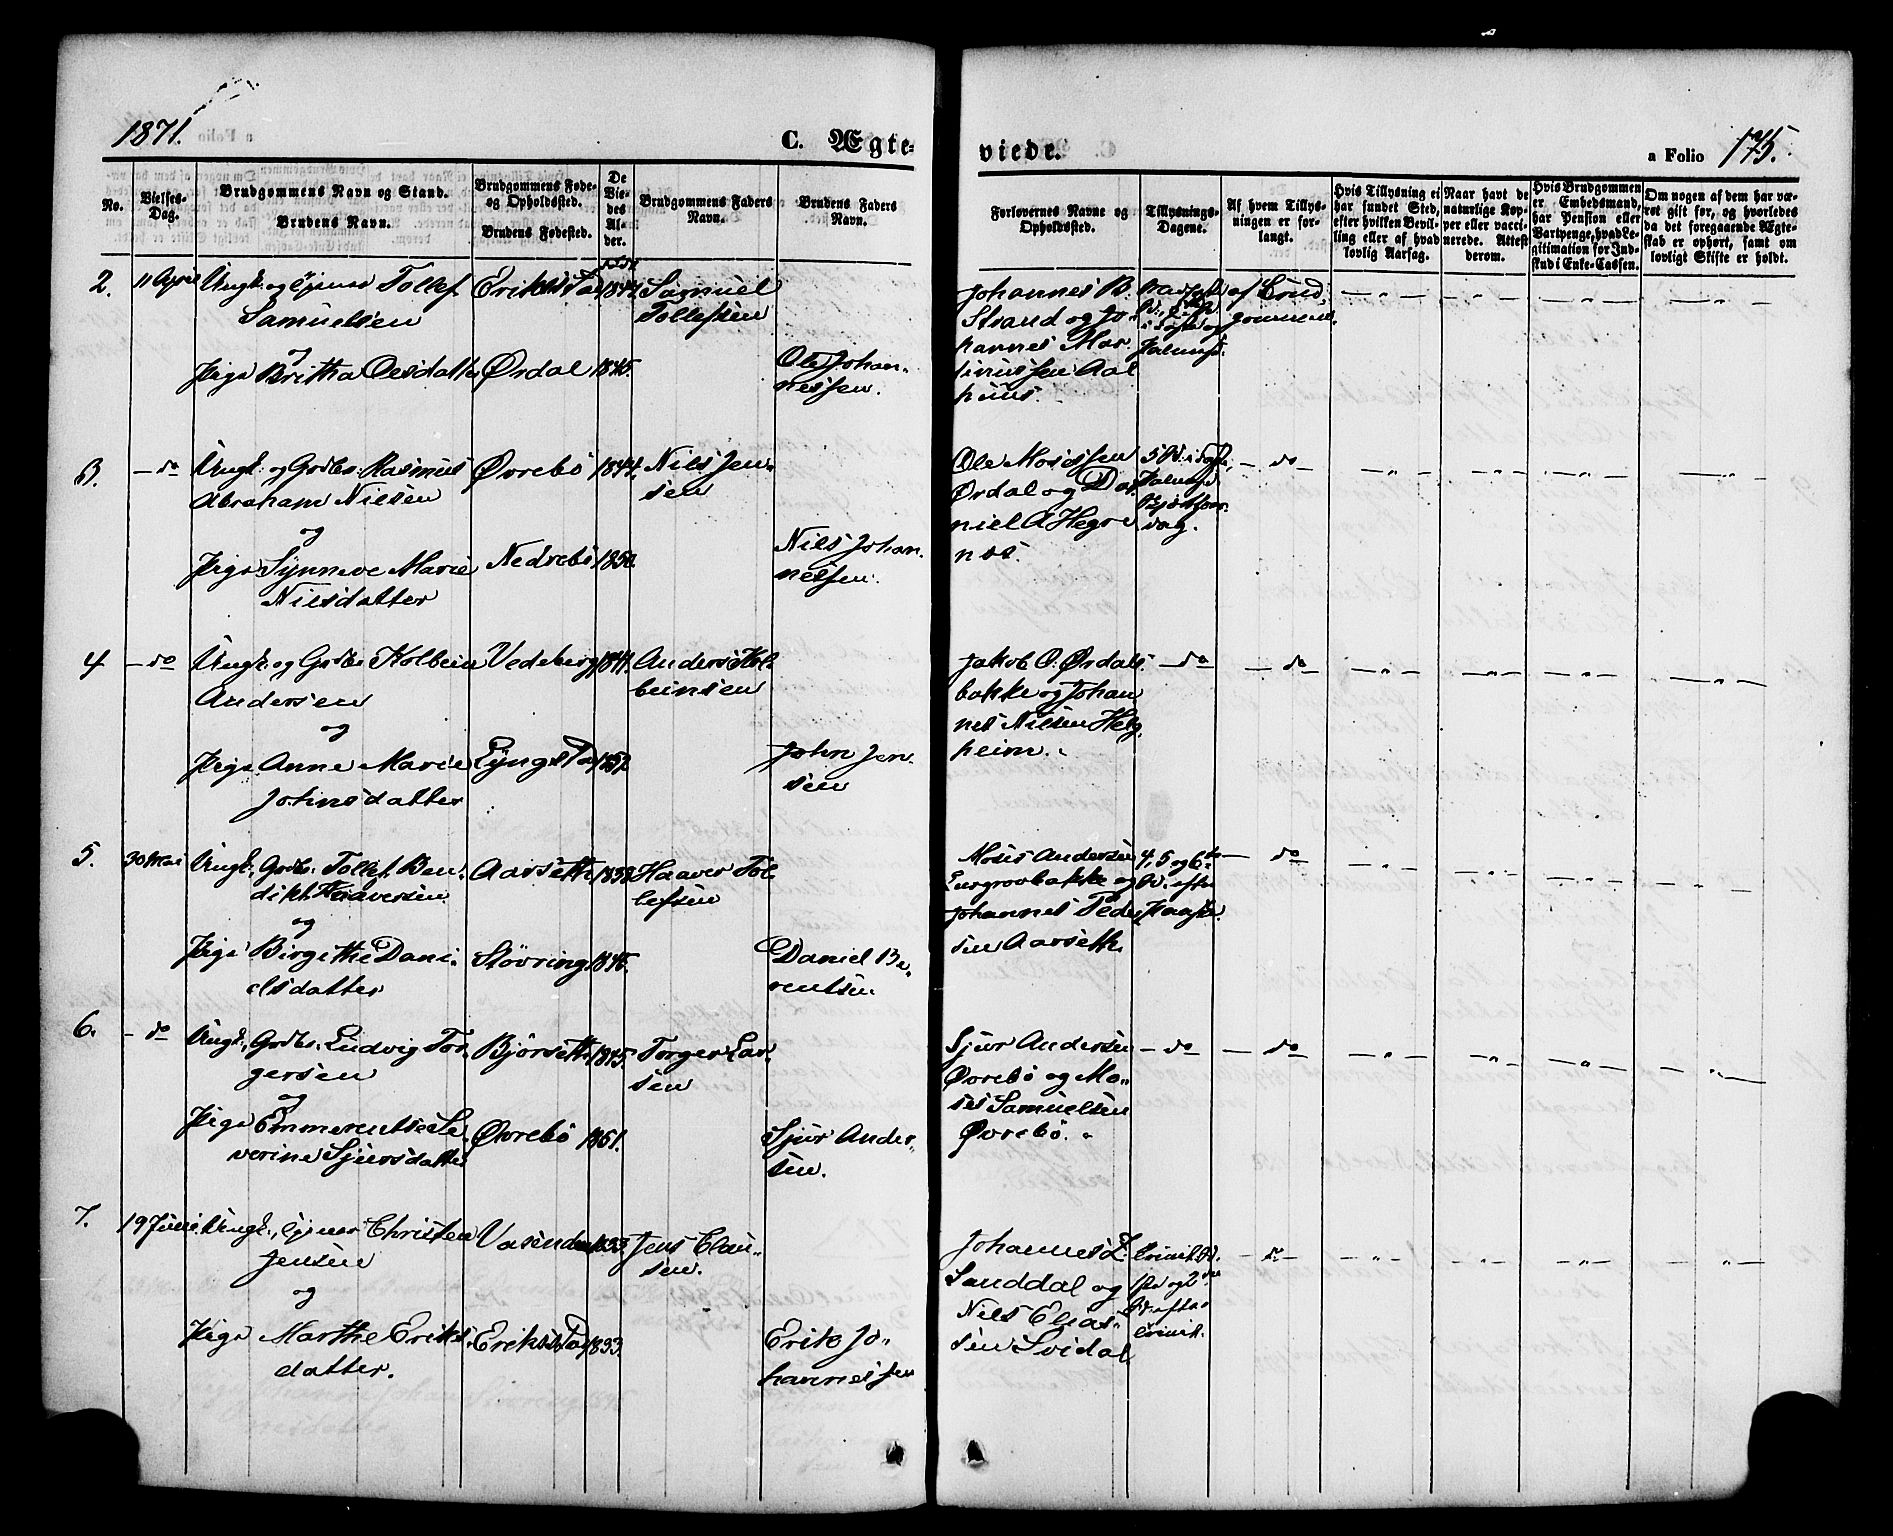 1871.
C. Ægte-
viede.
a Folio 175.
No.
Vielses-
Dag.
Brudgommens Navn og Stand.
Brudens Navn.
Brudgommens Føde-
og Opholdssted.
Brudens Fødested.
De
Vie-
des
Al-
der.
Brudgommens Faders
Navn.
Brudens Faders
Navn.
Forlovernes Navne og
Opholdssted.
Tillysnings-
Dagene.
Af hvem Tillys-
ningen er for-
langt.
Hvis Tillysning ei
har fundet Sted,
efter hvilken Bevil-
ling eller af hvad
lovlig Aarsag.
Naar havt de
naturlige Kop-
per eller vacci-
nerede. Attest
derom.
Hvis Brudgommen
er Embedsmand,
har Pension eller
Vartpenge, hvad Le-
gitimation for Ind-
skud i Enke-Cassen.
Om nogen af dem har væ-
ret gift før, og hvorledes
da det foregaaende Ægte-
skab er ophørt, samt om
lovligt Skifte er holdt.
2. 11 April Ungk. og Tjener Tollef
Samuelsen
og
Pige Britha Olesdatter
Erikstad
Ørdal 1845.
Samuel
Tollefsen
Ole Johan-
nessen.
Johannes B.
Strand og Jo-
hannes Mar-
tinussen Aal
huus.
af Brud-
gommen
3. – do Ungk. og Grdbr. Rasmus
Abraham Nielsen
og
Pige Synneve Marie
Nielsdatter
Øvrebö 1844.
Nedrebö 1850.
Niels Jen-
sen
Niels Johan-
nessen.
Ole Mosessen
Ørdal og Da-
niel A Hegre
nes.
– do –
4 – do Ungk. og Grdbr. Kolbein
Andersen
og
Pige Anne Marie
Johnsdatter
Vedeberg
Lyngstad
Anders Kol
beinsen
John Jen-
sen
Jakob O. Ørdals-
bakke og Johan
nes Nilsen Helg
heim.
– do – – do –
5. 30 Mai Ungk., Grdbr. Tollef Ben-
dikt Haaversen
og
Pige Birgithe Dani-
elsdatter
Aarseth
Stövring 1845.
Haaver Tol
lefsen
Daniel Be-
rentsen
Moses Andersen
og
Johannes Peder
sen Aarseth
4, 5 og 6te
S. efter
Paaske.
– do –
6. – do Ungk., Grdbr. Ludvig Tor-
gersen
og
Pige Emmerentse Se
verine Sjursdatter
Björseth 1845.
Øvrebö 1851.
Torger Lar-
sen
Sjur Ander-
sen.
Sjur Andersen
Øvrebö og Mo-
ses Samuelsen
Øvrebö.
– do – – do –
7. 19 Juni Ungk., Tjener Christen
Jensen
og
Pige Marthe Eriks-
datter.
Vasenden 1833.
Erikstad 1833.
Jens Clau-
sen.
Erik Jo-
hannessen
Johannes Z.
Sanddal og
Niels Elias-
sen Svidal
Trinit. S.
1ste og 2den
S. efter
Trinit.
– do –